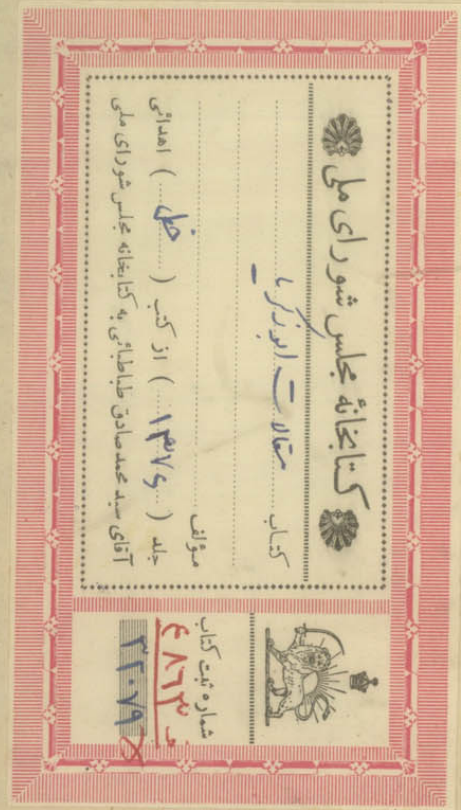 کتابخانهٔ مجلس شورای ملی
کتاب مقالات ابوزکریا
مؤلف
جلد ( ۱۳۷۶ ) از کتب ( خطی ) اهدائی
آقای سید محمد صادق طباطبائی به کتابخانه مجلس شورای ملی
شماره ثبت کتاب
۴۸۶۳
۳۲۰۷۹